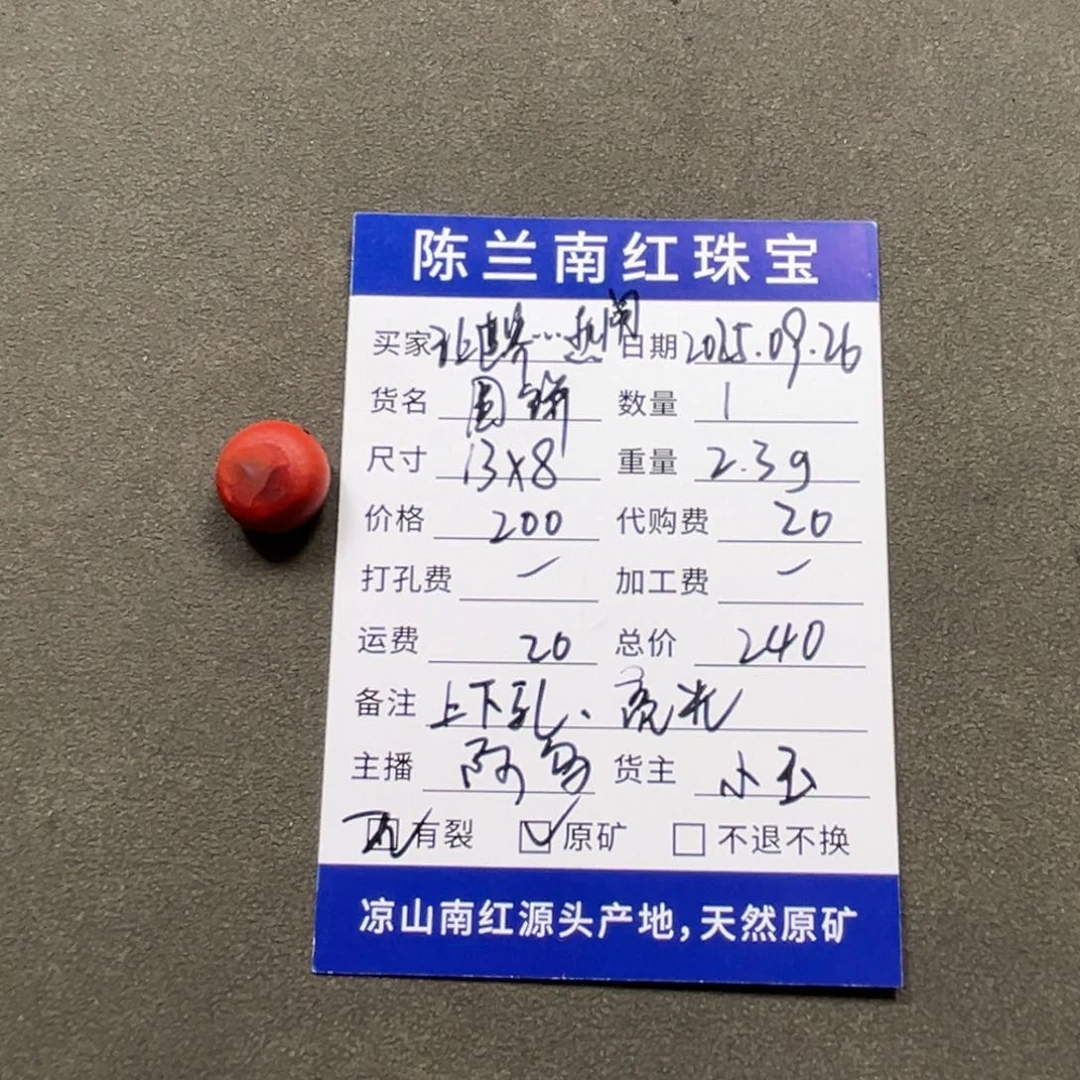 陈兰南红珠宝
买家 让世界…热闹 日期 2025.09.26
货名 圆饼 数量 1
尺寸 13x8 重量 2.3g
价格 200 代购费 20
打孔费 — 加工费 —
运费 20 总价 240
备注 上下孔、亮光
主播 阿 货主 小玉
有裂 原矿 不退不换
凉山南红源头产地,天然原矿